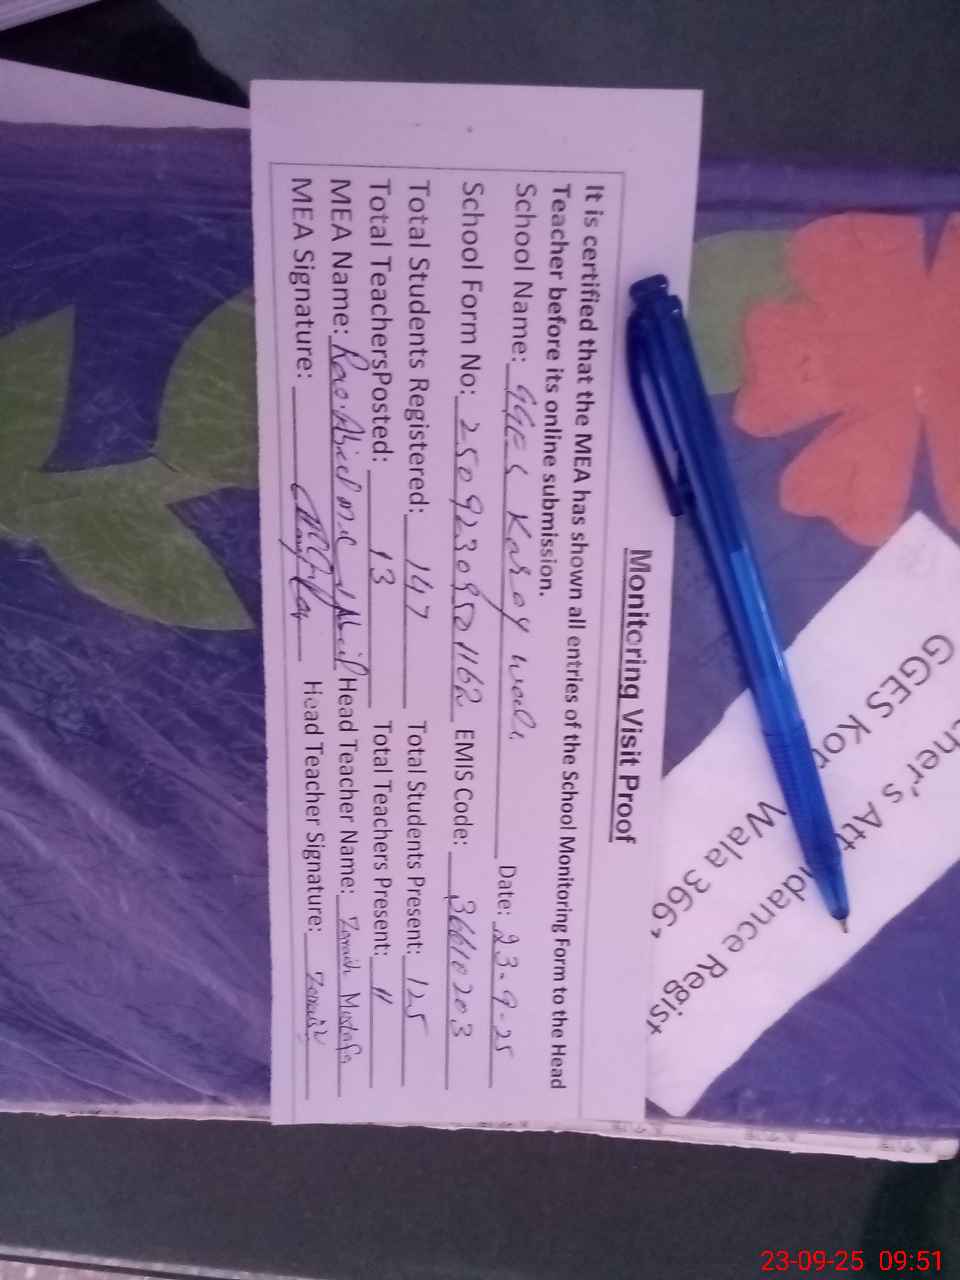 Monitoring Visit Proof
It is certified that the MEA has shown all entries of the School Monitoring Form to the Head
Teacher before its online submission.
School Name: GGES Karoy wala Date: 23-9-25
School Form No: 25092309501162 EMIS Code: 36610203
Total Students Registered: 147 Total Students Present: 125
Total TeachersPosted: 13 Total Teachers Present: 11
MEA Name: Rao. Head Teacher Name: Mustafa
MEA Signature: Head Teacher Signature:
cher's Att ndance Regist
GGES Ko
Wala 366
23-09-25 09:51